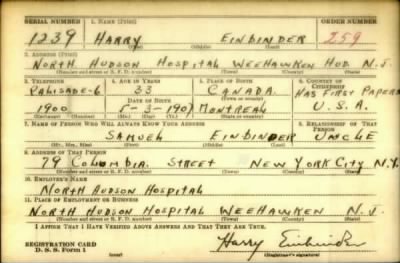 SERIAL NUMBER 1. NAME (Print) ORDER NUMBER
1239 HARRY EINBINDER 259
(First) (Middle) (Last)
2. ADDRESS (Print)
NORTH HUDSON HOSPITAL WEEHAWKEN HUD N.J.
(Number and street or R. F. D. number) (Town) (County) (State)
3. TELEPHONE 4. AGE IN YEARS 5. PLACE OF BIRTH 6. COUNTRY OF CITIZENSHIP
PALISADE-6 33 CANADA HAS FIRST PAPERS
DATE OF BIRTH (Town or county)
1900 5-3-1907 MONTREAL U.S.A.
(Mo.) (Day) (Yr.) (State or country)
7. NAME OF PERSON WHO WILL ALWAYS KNOW YOUR ADDRESS 8. RELATIONSHIP OF THAT PERSON
SAMUEL EINBINDER UNCLE
(Mr., Mrs., Miss) (First) (Middle) (Last)
9. ADDRESS OF THAT PERSON
79 COLUMBIA STREET NEW YORK CITY N.Y.
(Number and street or R. F. D. number) (Town) (County) (State)
10. EMPLOYER'S NAME
NORTH HUDSON HOSPITAL
11. PLACE OF EMPLOYMENT OR BUSINESS
NORTH HUDSON HOSPITAL WEEHAWKEN N.J.
(Number and street or R. F. D. number) (Town) (County) (State)
I AFFIRM THAT I HAVE VERIFIED ABOVE ANSWERS AND THAT THEY ARE TRUE.
REGISTRATION CARD
D. S. S. Form 1
Harry Einbinder
(Registrant's signature)